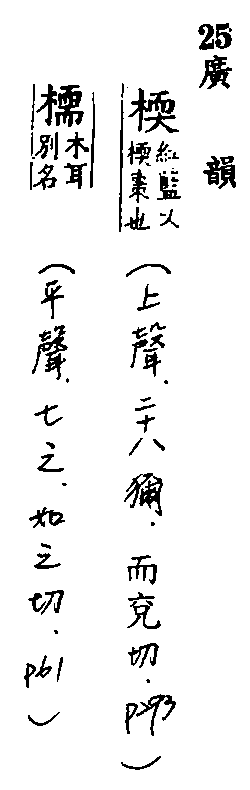 25 廣韻
㮕 紅監 㮕棗也 (上聲.二十八獮.而兗切.p293)
檽 木耳別名 (平聲.七之.如之切.p61)